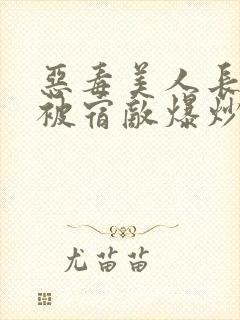 惡毒美人長
被宿敵爆炒
尤苗苗